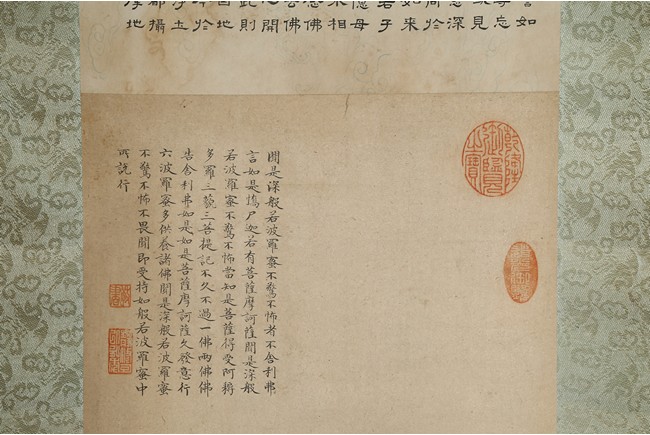 言如
忘
見
深
同於
如來
若子
憶母
來相
念佛
佛
心開
此則
因地
於
土
都攝
地
乾隆御覽之寶
聞是深般若波羅蜜不驚不怖者不舍利弗
言如是憍尸迦若有菩薩摩訶薩聞是深般
若波羅蜜不驚不怖當知是菩薩得受阿耨
多羅三藐三菩提記不久不過一佛兩佛佛
告舍利弗如是如是菩薩摩訶薩久發意行
六波羅蜜多供養諸佛聞是深般若波羅蜜
不驚不怖不畏聞即受持如般若波羅蜜中
所說行